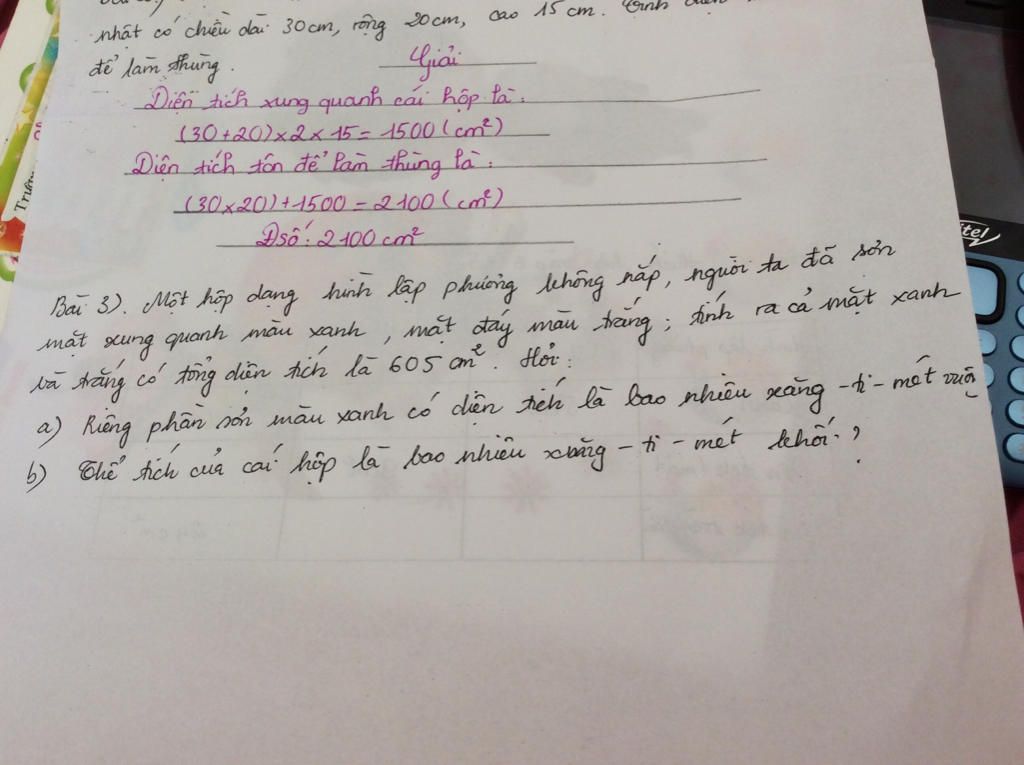 nhất có chiều dài 30cm, rộng 20cm, cao 15cm.
để làm thùng.
Giải
Diện tích xung quanh cái hộp là:
(30+20)×2×15=1500(cm²)
Diện tích tôn để làm thùng là:
(30×20)+1500=2100(cm²)
Đsố: 2100cm²
Bài 3). Một hộp dạng hình lập phương không nắp, người ta đã sơn
mặt xung quanh màu xanh, mặt đáy màu trắng; tính ra cả mặt xanh
và trắng có tổng diện tích là 605 cm². Hỏi:
a) Riêng phần sơn màu xanh có diện tích là bao nhiêu xăng-ti-mét vuôn
b) Thể tích của cái hộp là bao nhiêu xăng-ti-mét khối.?
itel